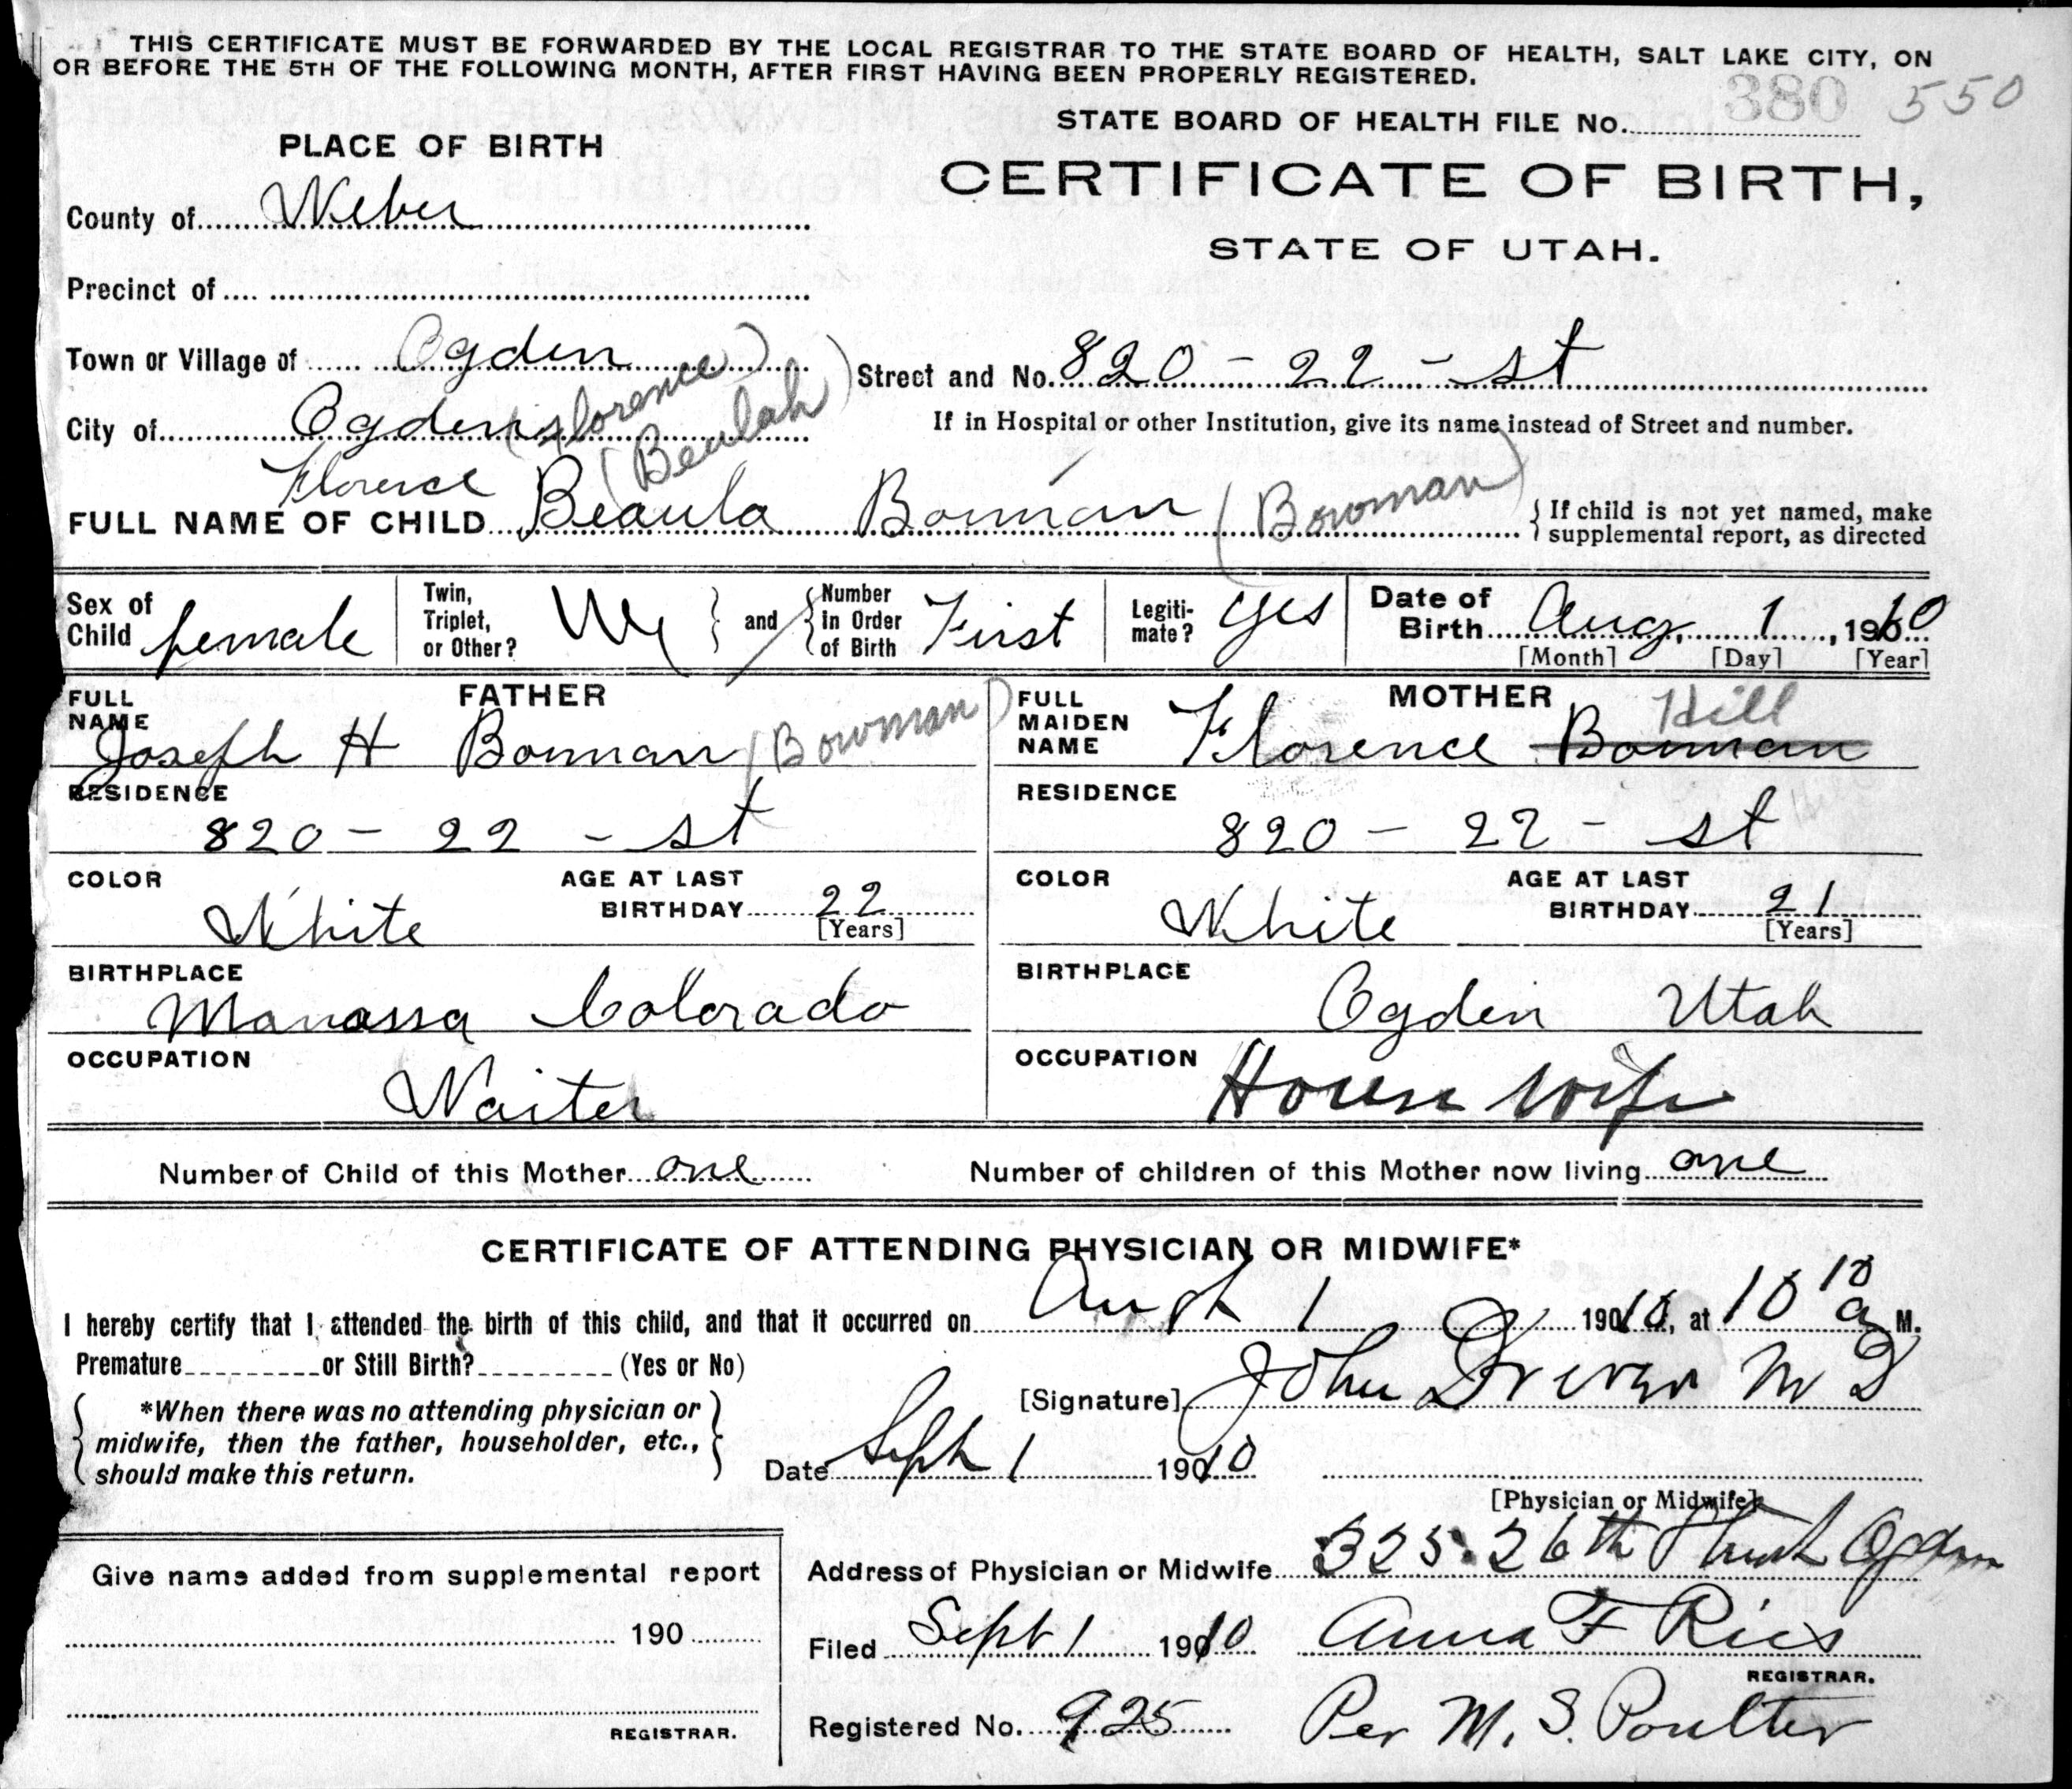 THIS CERTIFICATE MUST BE FORWARDED BY THE LOCAL REGISTRAR TO THE STATE BOARD OF HEALTH, SALT LAKE CITY, ON
OR BEFORE THE 5TH OF THE FOLLOWING MONTH, AFTER FIRST HAVING BEEN PROPERLY REGISTERED.
STATE BOARD OF HEALTH FILE No. 380 550
PLACE OF BIRTH
CERTIFICATE OF BIRTH,
STATE OF UTAH.
County of Weber
Precinct of
Town or Village of Ogden
Street and No. 820 - 22 - st
City of Ogden (Florence)
(Beulah)
If in Hospital or other Institution, give its name instead of Street and number.
Florence
FULL NAME OF CHILD Beaula Bowman (Bowman)
If child is not yet named, make
supplemental report, as directed
Sex of Child female
Twin, Triplet, or Other?
and
Number in Order of Birth First
Legiti-mate? yes
Date of Birth Aug. 1, 1910
[Month] [Day] [Year]
FATHER
FULL NAME Joseph H Bowman (Bowman)
RESIDENCE
820 - 22 - st
COLOR White
AGE AT LAST BIRTHDAY 22
[Years]
BIRTHPLACE
Manassa Colorado
OCCUPATION
Waiter
MOTHER
FULL MAIDEN NAME Florence Bowman Hill
RESIDENCE
820 - 22 - st
COLOR White
AGE AT LAST BIRTHDAY 21
[Years]
BIRTHPLACE
Ogden Utah
OCCUPATION House wife
Number of Child of this Mother one
Number of children of this Mother now living one
CERTIFICATE OF ATTENDING PHYSICIAN OR MIDWIFE*
I hereby certify that I attended the birth of this child, and that it occurred on Augst 1 1910, at 10 10 a M.
Premature or Still Birth? (Yes or No)
*When there was no attending physician or
midwife, then the father, householder, etc.,
should make this return.
[Signature] John Driver M D
Date Sept 1 1910
[Physician or Midwife]
Address of Physician or Midwife 325. 26th Street Ogden
Give name added from supplemental report
190
REGISTRAR.
Filed Sept 1 1910
Anna F Ries
REGISTRAR.
Registered No. 925
Per M. S. Poulter